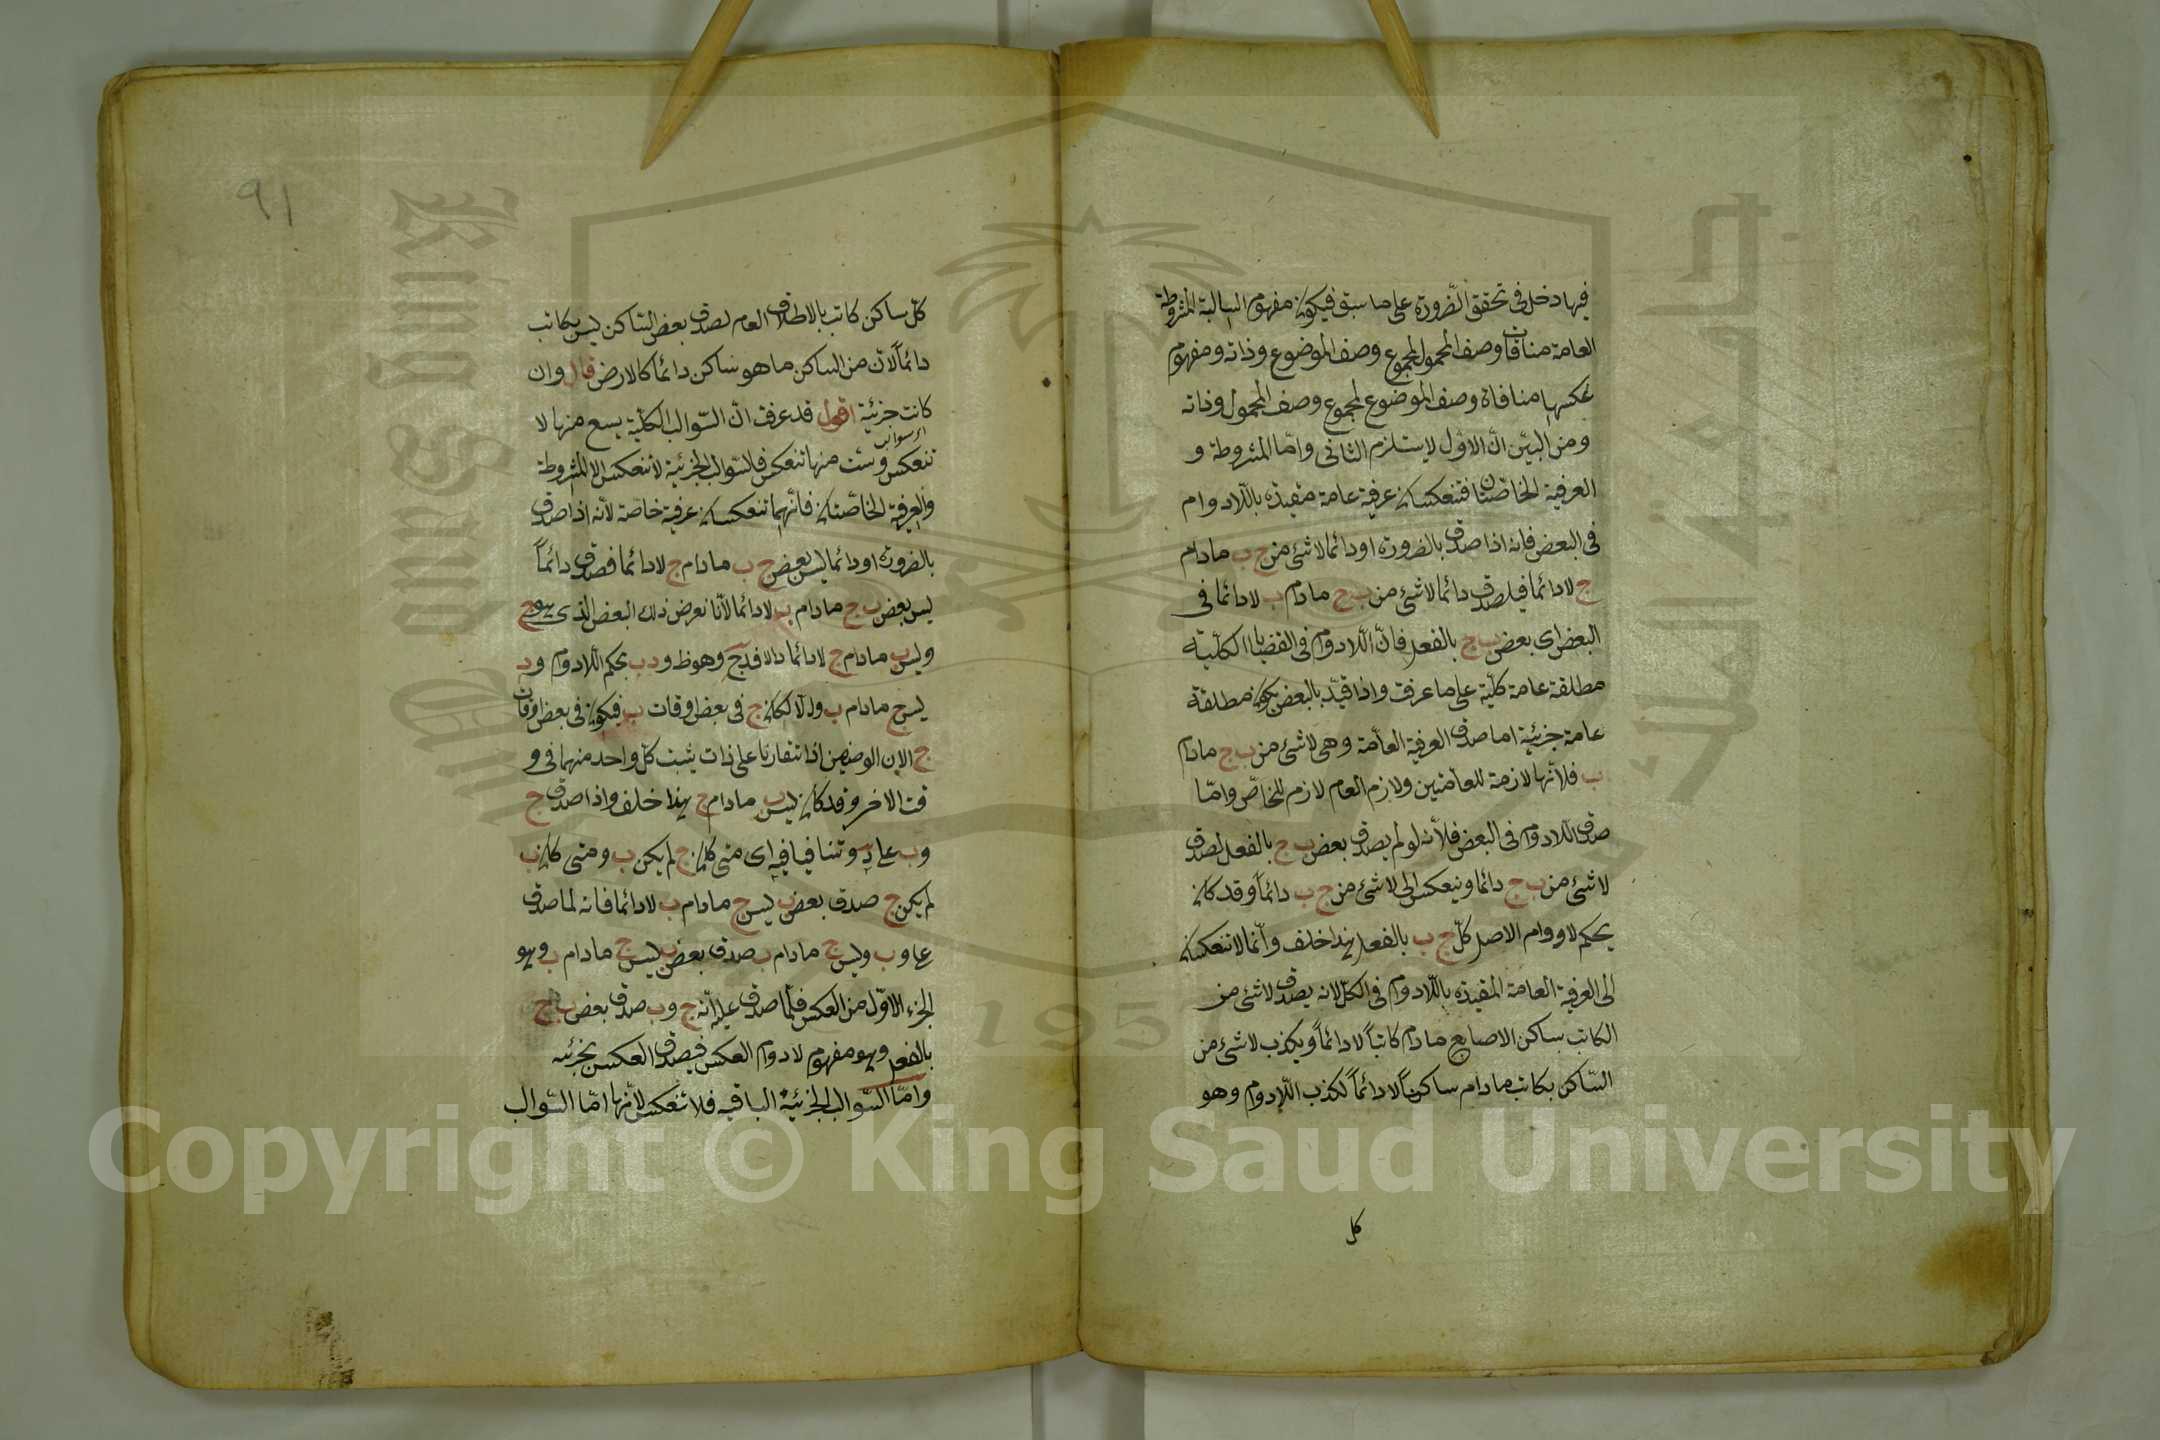 فيها دخل فى تحقق الضّرورة على ما سبق فيكون مفهوم السالبة المشروطة
العامة منافات وصف المحمول لمجموع وصف الموضوع وذاته ومفهوم
عكسها منافاة وصف الموضوع لمجموع وصف المحمول وذاته
ومن البيّن انّ الاوّل لا يستلزم الثانى وامّا المشروطة و
العرفية الخاصّتان فتنعكسان عرفية عامة مقيده باللّادوام
فى البعض فانه اذا صدق بالضرورة او دائما لا شئ من ج ب مادام
ج لا دائما فيصدق دائما لا شئ من ب ج مادام ب لا دائما فى
البعض اى بعض ب ج بالفعل فانّ اللّادوام فى القضايا الكلّية
مطلقة عامة كلّية على ما عرفت واذا قيّد بالبعض يكون مطلقة
عامة جزئية اما صدق العرفية العامّة وهى لا شئ من ب ج مادام
ب فلأنّها لازمة للعامّتين ولازم العام لازم للخاصّ وامّا
صدق اللّادوام فى البعض فلأنّه لو لم يصدق بعض ب ج بالفعل لصدق
لا شئ من ب ج دائما وينعكس الى لا شئ من ج ب دائماً وقد كان
بحكم لا دوام الاصل كلّ ج ب بالفعل هذا خلف وانّما لا تنعكسان
الى العرفية العامة المقيده باللّادوام فى الكلّ لانه يصدق لا شئ من
الكاتب بساكن الاصابع مادام كاتباً لا دائماً ويكذب لا شئ من
السّاكن بكاتب مادام ساكناً لا دائماً لكذب اللّادوام وهو
كل
٩١
كلّ ساكن كاتب بالاطلاق العام لصدق بعض السّاكن ليس بكاتب
دائماً لانّ من الساكن ما هو ساكن دائما كالارض قال وان
كانت جزئية اقول قد عرفت انّ السّوالب الكلّية سبع منها لا
تنعكس وست منها تنعكس فالسّوالب الجزئية لا تنعكس الا المشروطة
والعرفية الخاصّتان فانّهما تنعكسان عرفية خاصّة لأنّه اذا صدق
بالضرورة او دائما ليس بعض ج ب مادام ج لا دائما فصدق دائماً
ليس بعض ب ج مادام ب لا دائما لأنّا نفرض ذلك البعض الذى هو ج
وليس ب مادام ج لا دائما د فدج وهو ظ ودب بحكم اللّادوام ود
ليس ج مادام ب والّا لكان ج فى بعض اوقات ب فيكون فى بعض اوقات
ج لان الوصفين اذا تقارنا على ذات يثبت كلّ واحد منهما فى و
قت الاخر وقد كان ليس ب مادام ج هذا خلف واذا صدق ج
وب على د وتنافيا فيه اى متى كان ج لم يكن ب ومتى كان ب
لم يكن ج صدق بعض ب ليس ج مادام ب لا دائما فانه لما صدق
على د ب وليس ج مادام ب صدق بعض ب ليس ج مادام ب وهو
الجزء الاوّل من العكس فلّما صدق عليه انّه ج وب صدق بعض ب ج
بالفعل وهو مفهوم لا دوام العكس فيصدق العكس بجزئيه
وامّا السّوالب الجزئية الباقيه فلا تنعكس لأنّها امّا السّوالب
Copyright © King Saud University